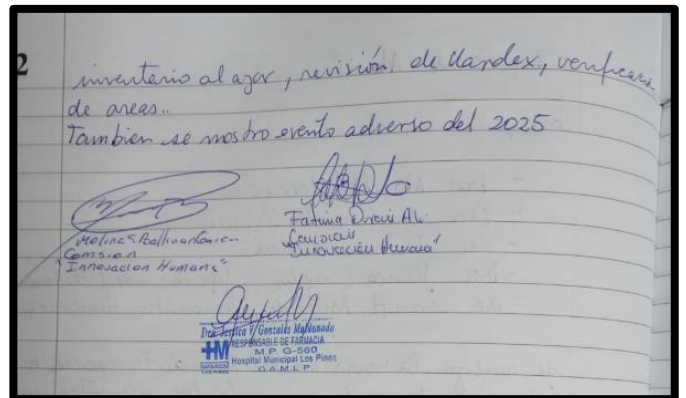 2
inventario al azar, revisión de Kardex, verificación
de areas..
Tambien se mostro evento adverso del 2025
Fatima
Comision
Comision
"Innovacion Humana"
"Innovacion Humana"
Dra. Jessica V. Gonzales Maldonado
RESPONSABLE DE FARMACIA
HM
M.P. G-560
Hospital Municipal Los Pinos
G.A.M.L.P.